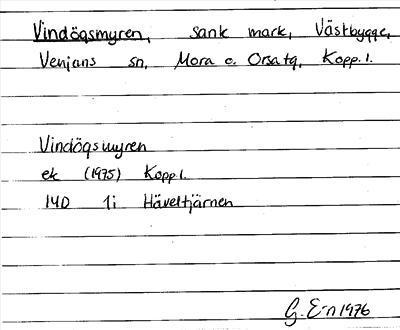 Vindögsmyren, sank mark, Västbygge,
Venjans sn, Mora o. Orsa tg, Kopp. l.
Vindögsmyren
ek (1975) Kopp l.
14D 1i Häveltjärnen
G. E-n 1976